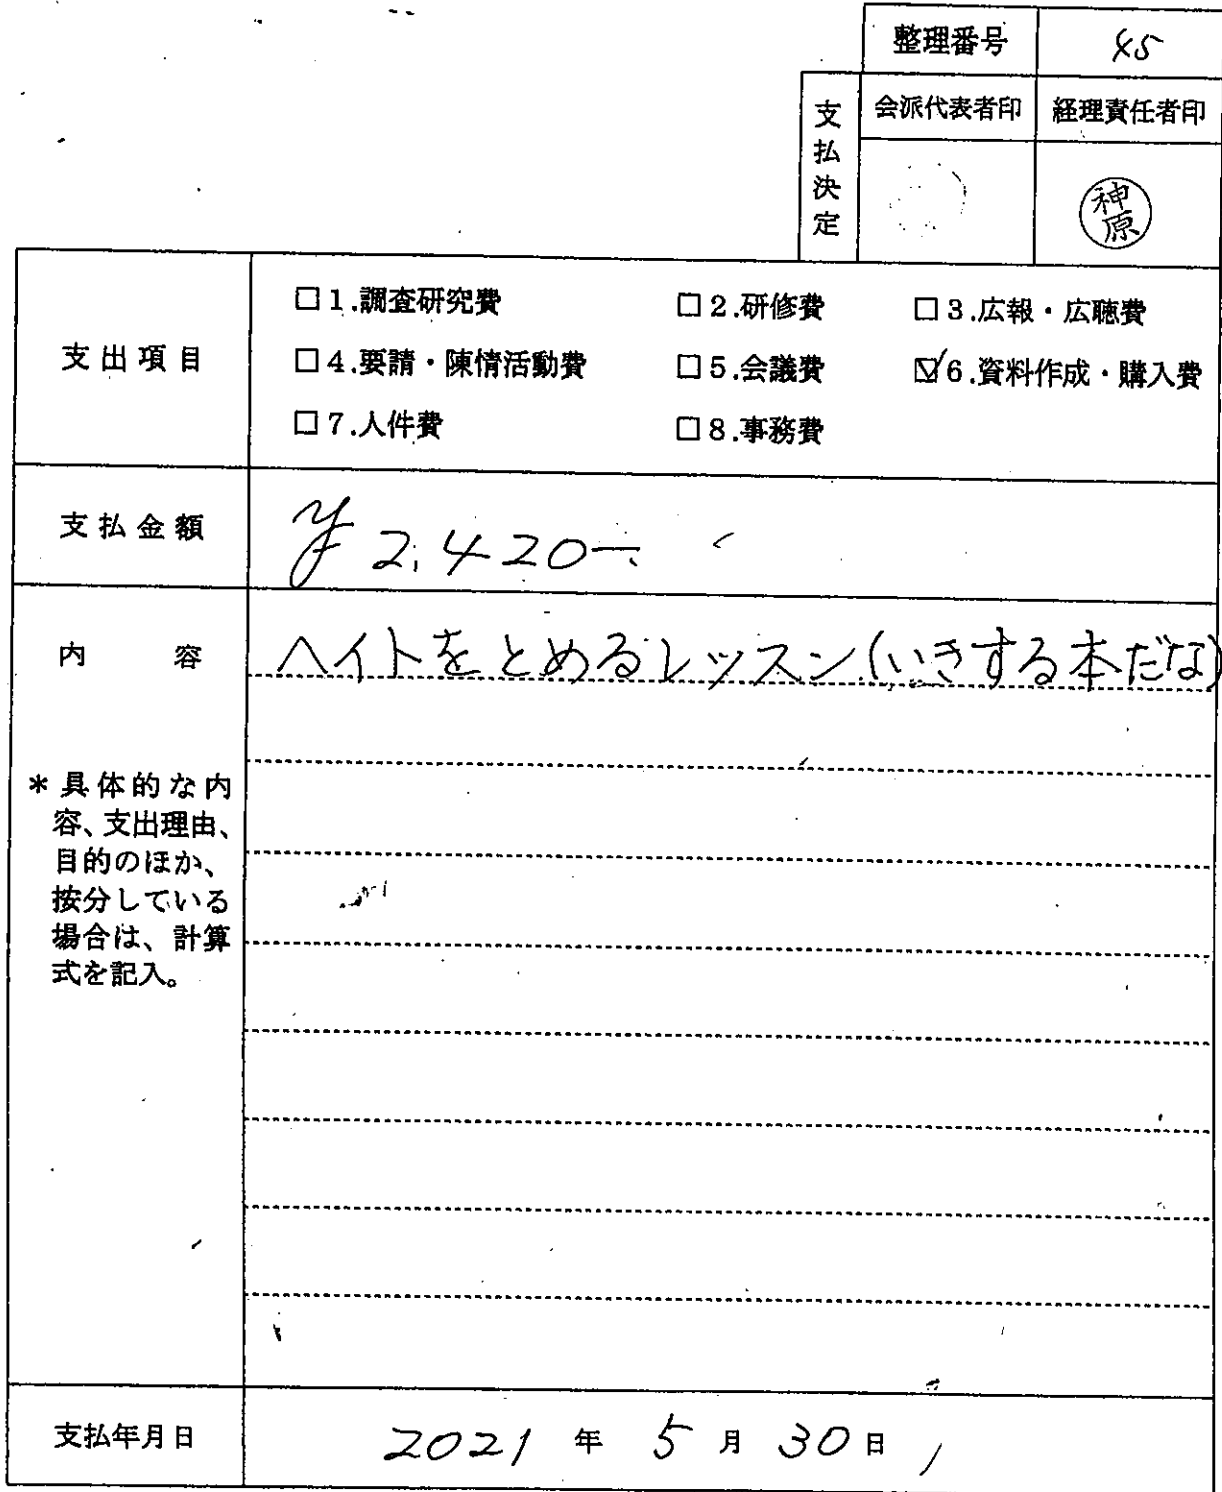 整理番号 45
支払決定
会派代表者印 経理責任者印
神原
支出項目
□1.調査研究費 □2.研修費 □3.広報・広聴費
□4.要請・陳情活動費 □5.会議費 ☑6.資料作成・購入費
□7.人件費 □8.事務費
支払金額 ¥2,420-
内容 ヘイトをとめるレッスン(いきする本だな)
*具体的な内
容、支出理由、
目的のほか、
按分している
場合は、計算
式を記入。
支払年月日 2021年5月30日